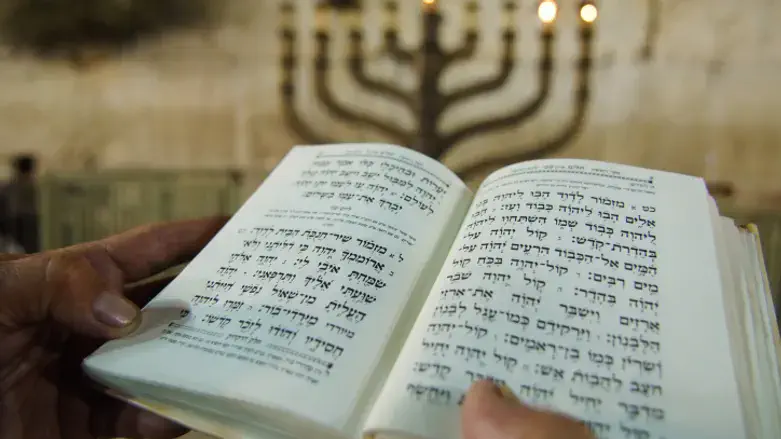 כט מִזְמוֹר לְדָוִד הָבוּ לַיהֹוָה בְּנֵי
אֵלִים הָבוּ לַיהֹוָה כָּבוֹד וָעֹז: הָבוּ
לַיהֹוָה כְּבוֹד שְׁמוֹ הִשְׁתַּחֲווּ לַיהֹוָה
בְּהַדְרַת־קֹדֶשׁ: קוֹל יְהֹוָה עַל
הַמָּיִם אֵל־הַכָּבוֹד הִרְעִים יְהֹוָה עַל
מַיִם רַבִּים: קוֹל־יְהֹוָה בַּכֹּחַ קוֹל
יְהֹוָה בֶּהָדָר: קוֹל יְהֹוָה שֹׁבֵר
אֲרָזִים וַיְשַׁבֵּר יְהֹוָה אֶת־אַרְזֵי
הַלְּבָנוֹן: וַיַּרְקִידֵם כְּמוֹ־עֵגֶל לְבָנוֹן
וְשִׂרְיוֹן כְּמוֹ בֶן־רְאֵמִים: קוֹל־יְהֹוָה
חֹצֵב לַהֲבוֹת אֵשׁ: קוֹל יְהֹוָה יָחִיל
מִדְבָּר יָחִיל יְהֹוָה מִדְבַּר קָדֵשׁ:
וַיֶּחֱשֹׂף
יְעָרוֹת וּבְהֵיכָלוֹ כֻּלּוֹ אֹמֵר כָּבוֹד:
יְהֹוָה לַמַּבּוּל יָשָׁב וַיֵּשֶׁב יְהֹוָה מֶלֶךְ
לְעוֹלָם: יְהֹוָה עֹז לְעַמּוֹ יִתֵּן יְהֹוָה
יְבָרֵךְ אֶת־עַמּוֹ בַשָּׁלוֹם:
ל מִזְמוֹר שִׁיר־חֲנֻכַּת הַבַּיִת לְדָוִד:
אֲרוֹמִמְךָ יְהֹוָה כִּי דִלִּיתָנִי וְלֹא־
שִׂמַּחְתָּ אֹיְבַי לִי: יְהֹוָה אֱלֹהָי
שִׁוַּעְתִּי אֵלֶיךָ וַתִּרְפָּאֵנִי: יְהֹוָה
הֶעֱלִיתָ מִן־שְׁאוֹל נַפְשִׁי חִיִּיתַנִי
מיורדי מִיָּרְדִי־בוֹר: זַמְּרוּ לַיהֹוָה
חֲסִידָיו וְהוֹדוּ לְזֵכֶר קָדְשׁוֹ: כִּי